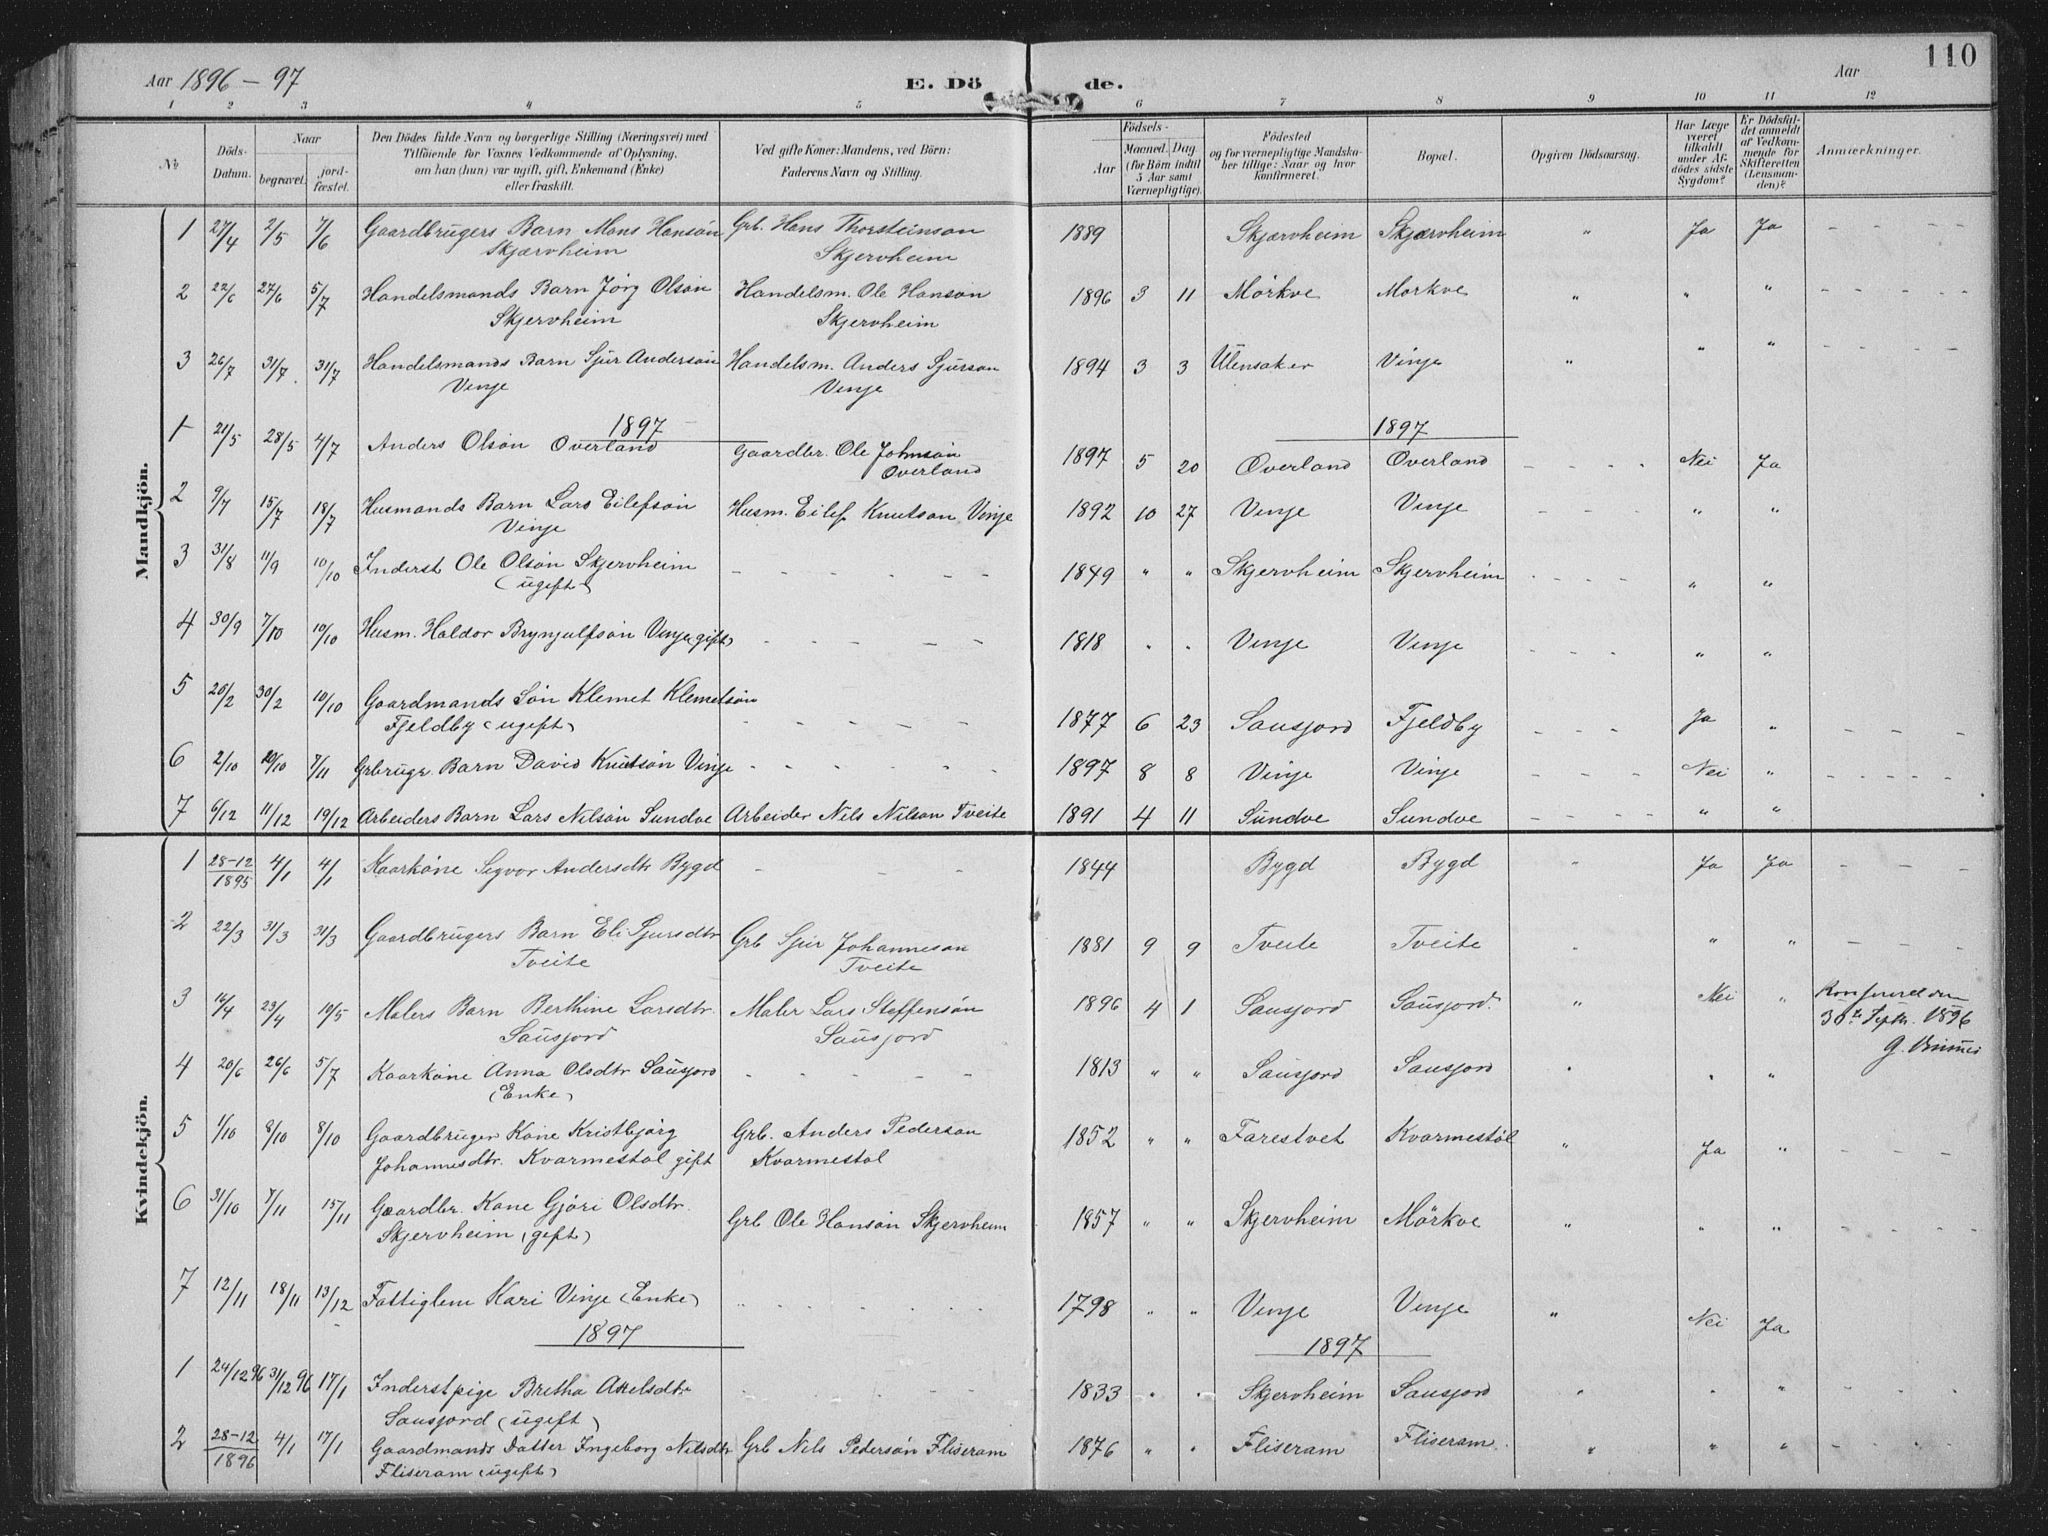 110
Aar 1896 – 97 E. Dö de. Aar
1 2 3 4 5 6 7 8 9 10 11 12
№
Döds-Datum.
Naar
begravet.
jord-fæstet.
Den Dödes fulde Navn og borgerlige Stilling (Næringsvei) med
Tilföiende for Voxnes Vedkommende af Oplysning,
om han (hun) var ugift, gift, Enkemand (Enke)
eller fraskilt.
Ved gifte Koner: Mandens, ved Börn:
Faderens Navn og Stilling.
Födsels-
Aar
Maaned. Dag
(for Börn indtil
5 Aar samt
Værnepligtige).
Födested
og for værnepligtige Mandska-
ber tillige: Naar og hvor
konfirmeret.
Bopæl.
Opgiven Dödsaarsag.
Har Læge
været
tilkaldt
under Af-
dödes sidste
Sygdom?
Er Dödsfal-
det anmeldt
af Vedkom-
mende for
Skifteretten
(Lensman-
den)?
Anmærkninger.
Mandkjön.
1 27/4 2/5 7/6 Gaardbrugers Barn Mons Hansön Grb. Hans Thorsteinson 1889 Skjærvheim Skjærvheim " Ja Ja
Skjærvheim Skjervheim
2 22/6 27/6 5/7 Handelsmands Barn Jörg Olsön Handelsm. Ole Hanson 1896 3 11 Mörkve Mörkve " " "
Skjervheim Skjervheim
3 26/7 31/7 31/7 Handelsmands Barn Sjur Anderson Handelsm. Anders Sjurson 1894 3 3 Ulensaker Vinje " " "
Vinje Vinje
1897 1897
1 21/5 28/5 4/7 Anders Olsön Overland Gaardbr. Ole Johnsön 1897 5 20 Overland Overland Nei Ja
Overland
2 9/7 15/7 18/7 Husmands Barn Lars Eilefsön Husm. Eilef Knutson Vinje 1892 10 27 Vinje Vinje " "
Vinje
3 31/8 11/9 10/10 Inderst Ole Olsön Skjervheim 1849 " " Skjervheim Skjervheim " "
(ugift)
4 30/9 7/10 10/10 Husm. Haldor Brynjulfsön Vinje (gift) 1818 " " Vinje Vinje " "
5 20/2 30/2 10/10 Gaardmands Sön Klemet Klemetsön 1877 6 23 Sausjord Fjeldby Ja "
Fjeldby (ugift)
6 2/10 10/10 7/11 Grbrugr. Barn David Knutsön Vinje 1897 8 8 Vinje Vinje Nei "
7 6/12 11/12 19/12 Arbeiders Barn Lars Nilsön Sundve Arbeider Nils Nilson Tveite 1891 4 11 Sundve Sundve " "
Kvindekjön.
1 28-12/1895 4/1 4/1 Kaarkone Sigvor Andersdtr Bygd 1844 Bygd Bygd " Ja Ja
2 22/3 31/3 31/3 Gaardbrugers Barn Eli Sjursdtr Grb Sjur Johanneson 1881 9 9 Tveite Tveite " " "
Tveite Tveite
3 16/4 23/4 10/5 Malers Barn Berthine Larsdtr. Maler Lars Steffensön 1896 4 1 Sausjord Sausjord. " Nei "
Sausjord Sausjord
30te Septr. 1896
G.
4 20/6 26/6 5/7 Kaarkone Anna Olsdtr Sausjord 1813 " " Sausjord Sausjord " " "
(Enke)
5 1/10 8/10 8/10 Gaardbruger Kone Kristbjörg Grb. Anders Pederson 1852 " " Farestvet Kvarmestöl " Ja "
Johannesdtr. Kvarmestöl gift Kvarmestöl
6 31/10 7/11 15/11 Gaardbr. Kone Gjöri Olsdtr. Grb Ole Hanson Skjervheim 1857 " " Skjervheim Mörkve " " "
Skjervheim (gift)
7 12/11 18/11 13/12 Fattiglem Kari Vinje (Enke) 1798 " " Vinje Vinje " Nei Ja
1897 1897
1 24/12 96 31/12 96 17/1 Inderstpige Bretha Axelsdtr 1833 " " Skjervheim Sausjord " " "
Sausjord (ugift)
2 28-12/1896 4/1 17/1 Gaardmands Datter Ingeborg Nilsdtr Grb Nils Pedersön Fliseram 1876 " " Fliseram Fliseram " " "
Fliseram (ugift)